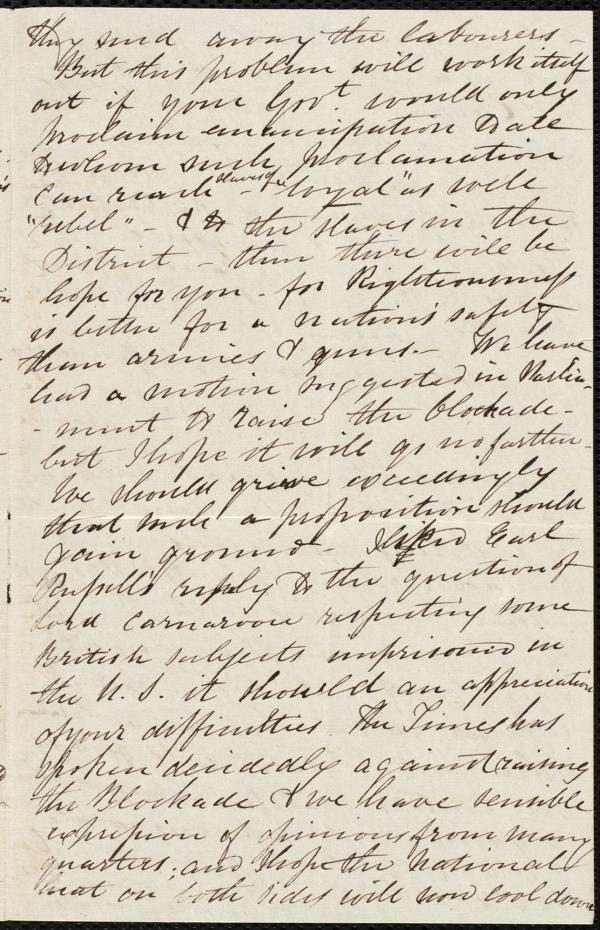 they send away the labourers -
But this problem will work itself
out if your Govt. would only
proclaim emancipation to all
to whom such proclamation
can reach - slaves of "loyal" as well
"rebel" - & to the slaves in the
District - then there will be
hope for you - for Righteousness
is better for a nation's safety
than armies & guns. - We have
had a motion suggested in Parlia-
-ment to raise the blockade -
but I hope it will go no farther -
We should grieve exceedingly
that such a proposition should
gain ground - I liked Earl
Russell's reply to the question of
Lord Carnarvon respecting some
British subjects imprisoned in
the U. S. it should an appreciation
of your difficulties. The Times has
spoken decidedly against raising
the Blockade & we have sensible
expression of opinions from many
quarters; and I hope the National
heat on both sides will now cool down